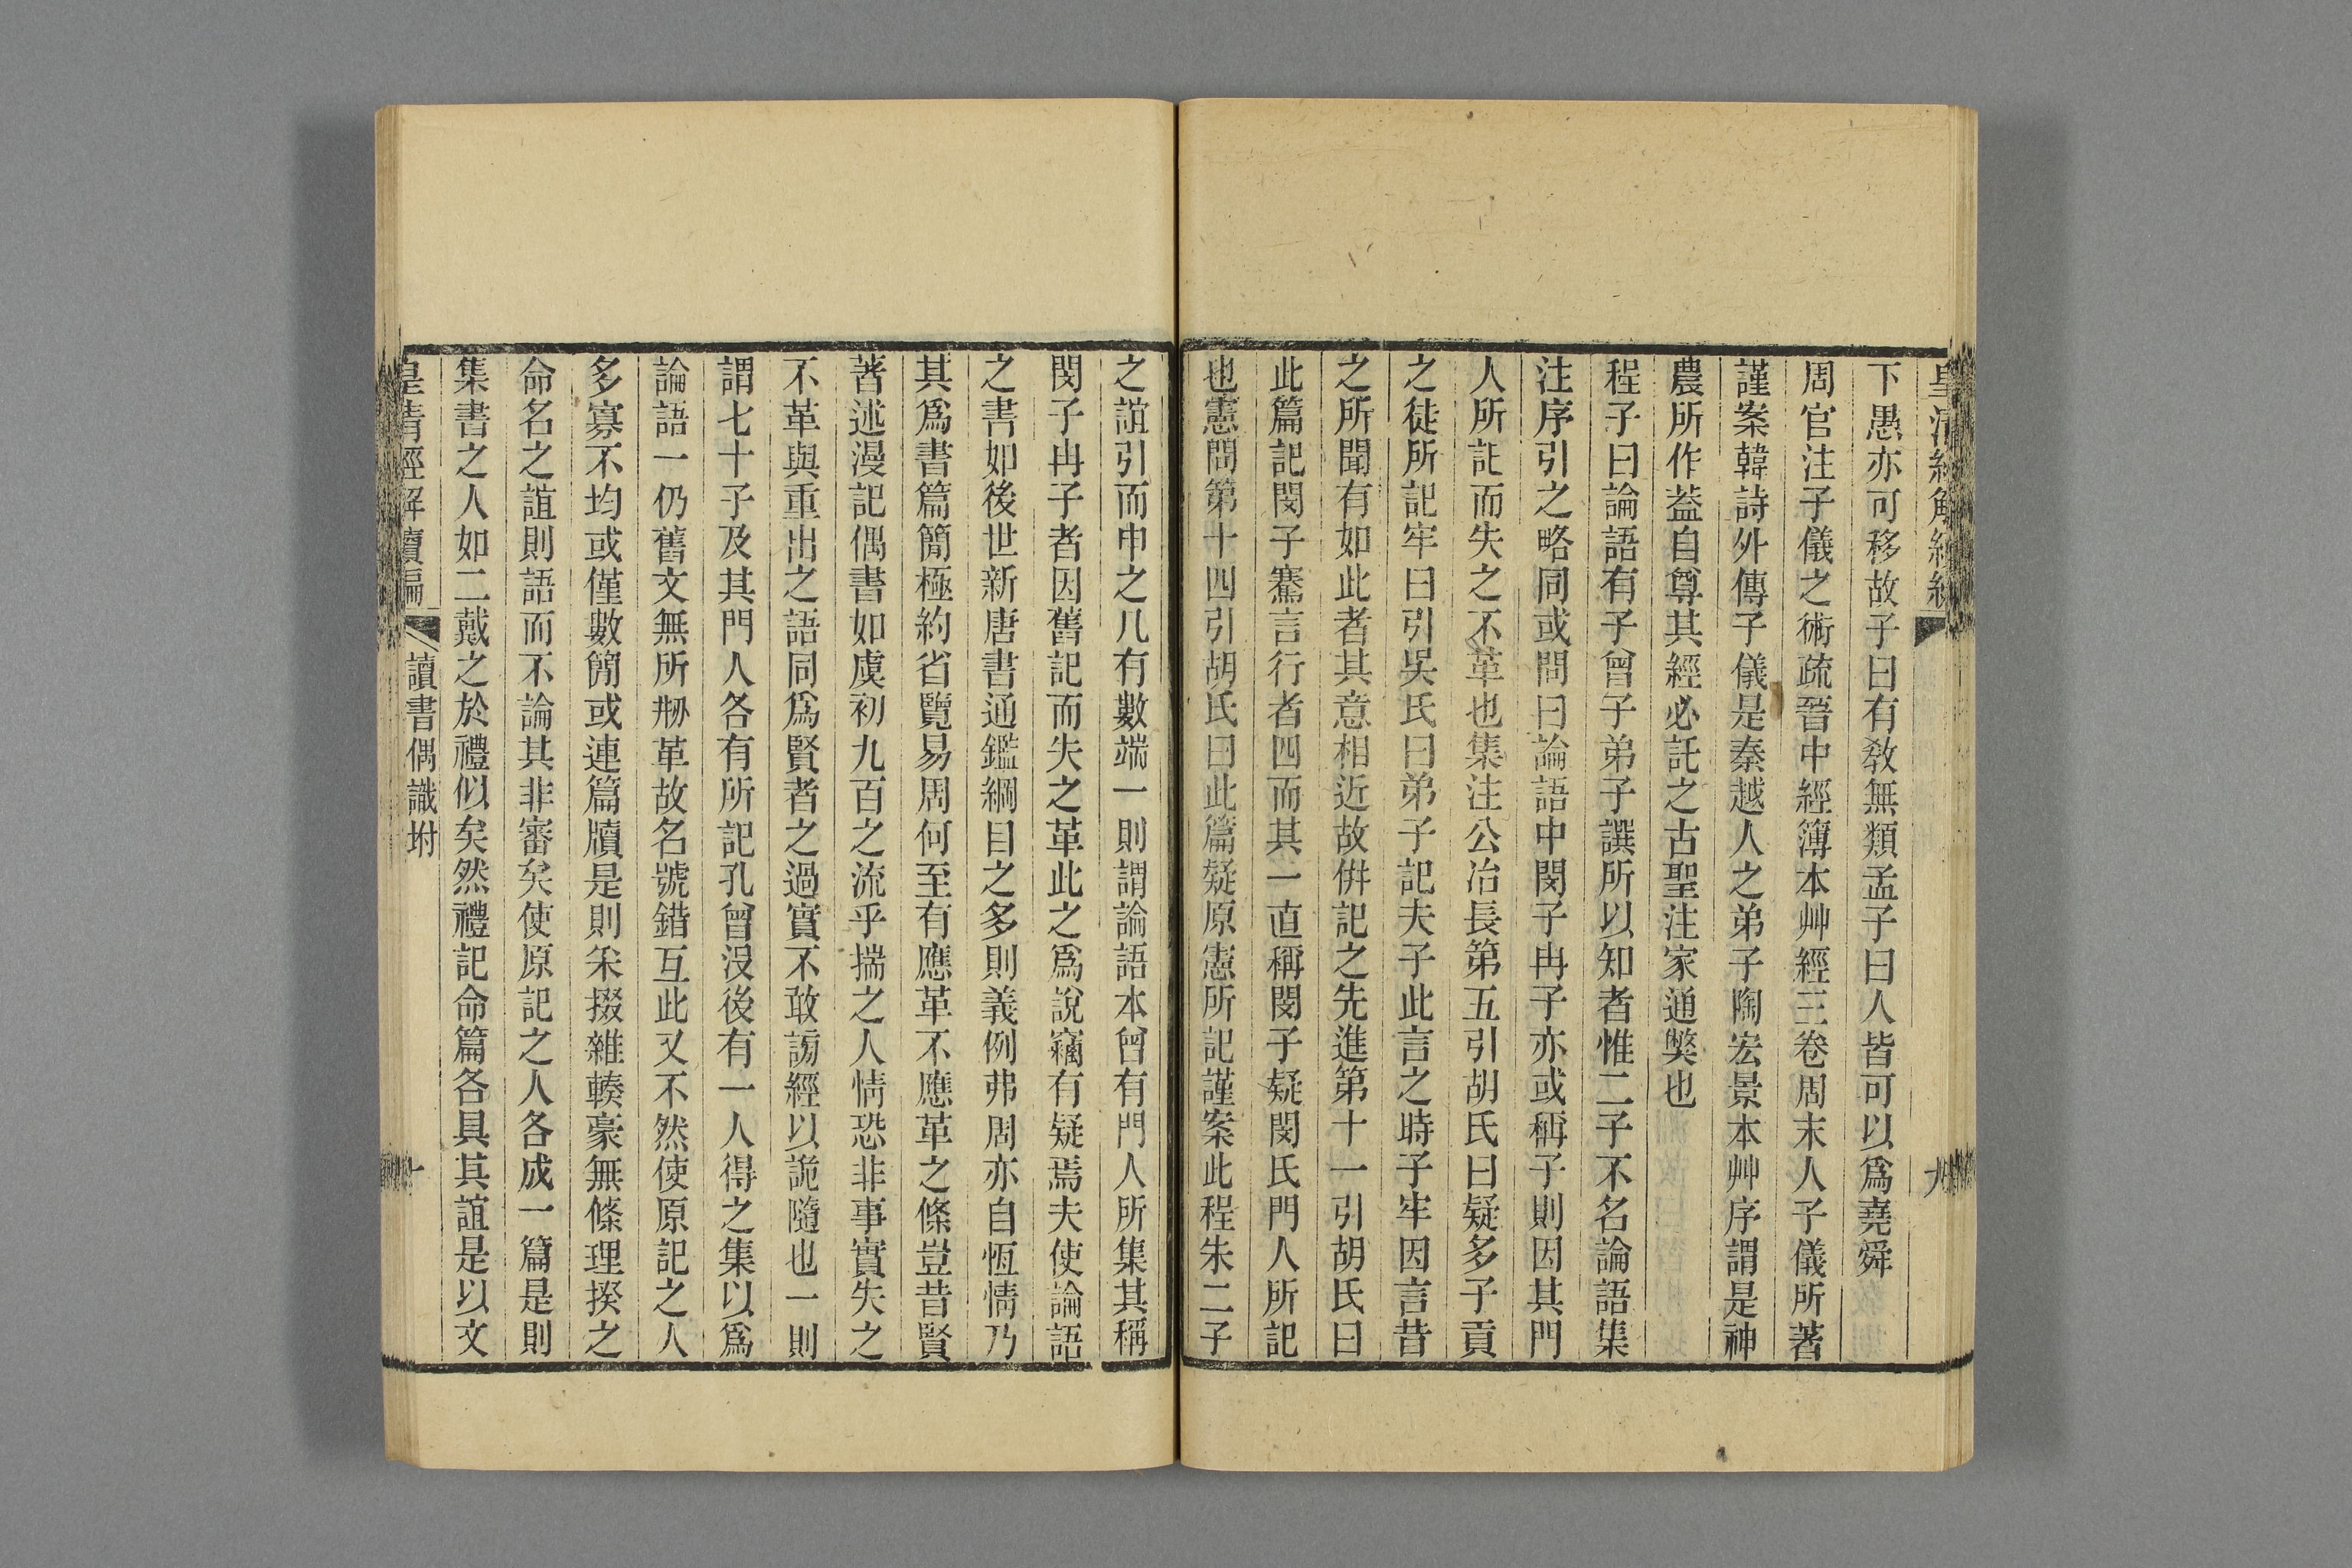 下愚亦可移故子曰有敎無類孟子曰人皆可以爲堯舜
周官注子儀之術疏晉中經簿本艸經三卷周末人子儀所著
謹案韓詩外傳子儀是秦越人之弟子陶宏景本艸序謂是神
農所作葢自尊其經必託之古聖注家通獘也
程子曰論語有子曾子弟子譔所以知者惟二子不名論語集
注序引之略同或問曰論語中閔子冉子亦或稱子則因其門
人所記而失之不革也集注公冶長第五引胡氏曰疑多子貢
之徒所記牢曰引吳氏曰弟子記夫子此言之時子牢因言昔
之所聞有如此者其意相近故倂記之先進第十一引胡氏曰
此篇記閔子騫言行者四而其一直稱閔子疑閔氏門人所記
也憲問第十四引胡氏曰此篇疑原憲所記謹案此程朱二子
之誼引而申之凡有數端一則謂論語本曾有門人所集其稱
閔子冉子者因舊記而失之革此之爲說竊有疑焉夫使論語
之書如後世新唐書通鑑綱目之多則義例弗周亦自恆情乃
其爲書篇簡極約省覽易周何至有應革不應革之條豈昔賢
著述漫記偶書如虞初九百之流乎揣之人情恐非事實失之
不革與重出之語同爲賢者之過實不敢謗經以詭隨也一則
謂七十子及其門人各有所記孔曾沒後有一人得之集以爲
論語一仍舊文無所刱革故名號錯互此又不然使原記之人
多寡不均或僅數簡或連篇牘是則采掇雜輳豪無條理揆之
命名之誼則語而不論其非審矣使原記之人各成一篇是則
集書之人如二戴之於禮似矣然禮記命篇各具其誼是以文
皇清經解續編
讀書偶識坿
十